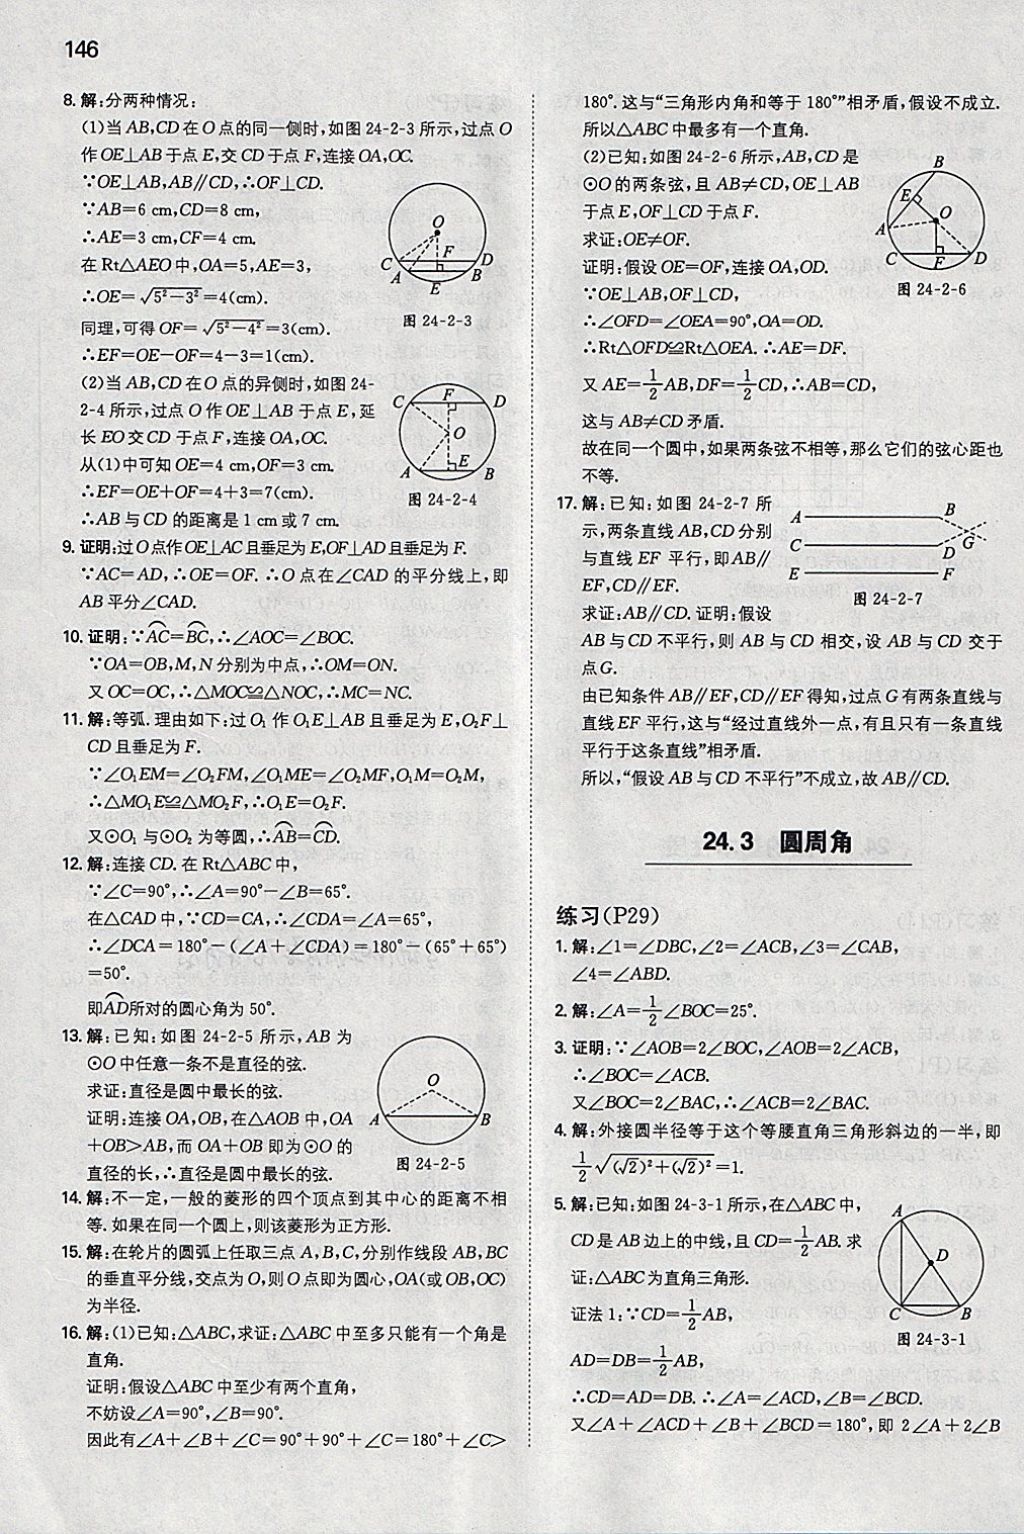 146
8. 解:分两种情况:
(1)当 AB,CD 在 O 点的同一侧时,如图 24-2-3 所示,过点 O
作 OE⊥AB 于点 E,交 CD 于点 F,连接 OA,OC.
∵OE⊥AB,AB∥CD,∴OF⊥CD.
∵AB=6 cm,CD=8 cm,
∴AE=3 cm,CF=4 cm.
在 Rt△AEO 中,OA=5,AE=3,
∴OE=√(5²-3²)=4(cm).
同理,可得 OF=√(5²-4²)=3(cm).
∴EF=OE-OF=4-3=1(cm).
O
F
C
D
A
B
E
图 24-2-3
(2)当 AB,CD 在 O 点的异侧时,如图 24-
2-4 所示,过点 O 作 OE⊥AB 于点 E,延
长 EO 交 CD 于点 F,连接 OA,OC.
从(1)中可知 OE=4 cm,OF=3 cm.
∴EF=OE+OF=4+3=7(cm).
∴AB 与 CD 的距离是 1 cm 或 7 cm.
C
F
D
O
A
E
B
图 24-2-4
9. 证明:过 O 点作 OE⊥AC 且垂足为 E,OF⊥AD 且垂足为 F.
∵AC=AD,∴OE=OF. ∴O 点在∠CAD 的平分线上,即
AB 平分∠CAD.
10. 证明:∵A͡C=B͡C,∴∠AOC=∠BOC.
∵OA=OB,M,N 分别为中点,∴OM=ON.
又 OC=OC,∴△MOC≌△NOC,∴MC=NC.
11. 解:等弧. 理由如下:过 O₁ 作 O₁E⊥AB 且垂足为 E,O₂F⊥
CD 且垂足为 F.
∵∠O₁EM=∠O₂FM,∠O₁ME=∠O₂MF,O₁M=O₂M,
∴△MO₁E≌△MO₂F,∴O₁E=O₂F.
又⊙O₁ 与⊙O₂ 为等圆,∴A͡B=C͡D.
12. 解:连接 CD. 在 Rt△ABC 中,
∵∠C=90°,∴∠A=90°-∠B=65°.
在△CAD 中,∵CD=CA,∴∠CDA=∠A=65°,
∴∠DCA=180°-(∠A+∠CDA)=180°-(65°+65°)
=50°.
即A͡D所对的圆心角为 50°.
13. 解:已知:如图 24-2-5 所示,AB 为
⊙O 中任意一条不是直径的弦.
求证:直径是圆中最长的弦.
证明:连接 OA,OB,在△AOB 中,OA
+OB>AB,而 OA+OB 即为⊙O 的
直径的长,∴直径是圆中最长的弦.
O
A
B
图 24-2-5
14. 解:不一定,一般的菱形的四个顶点到其中心的距离不相
等. 如果在同一个圆上,则该菱形为正方形.
15. 解:在轮片的圆弧上任取三点 A,B,C,分别作线段 AB,BC
的垂直平分线,交点为 O,则 O 点即为圆心,OA(或 OB,OC)
为半径.
16. 解:(1)已知:△ABC,求证:△ABC 中至多只能有一个角是
直角.
证明:假设△ABC 中至少有两个直角,
不妨设∠A=90°,∠B=90°.
因此有∠A+∠B+∠C=90°+90°+∠C=180°+∠C>
180°. 这与“三角形内角和等于 180°”相矛盾,假设不成立.
所以△ABC 中最多有一个直角.
(2)已知:如图 24-2-6 所示,AB,CD 是
⊙O 的两条弦,且 AB≠CD,OE⊥AB
于点 E,OF⊥CD 于点 F.
求证:OE≠OF.
证明:假设 OE=OF,连接 OA,OD.
∵OE⊥AB,OF⊥CD,
∴∠OFD=∠OEA=90°,OA=OD.
∴Rt△OFD≌Rt△OEA. ∴AE=DF.
又 AE=1/2AB,DF=1/2CD,∴AB=CD,
这与 AB≠CD 矛盾.
故在同一个圆中,如果两条弦不相等,那么它们的弦心距也
不等.
B
E
O
A
C
F
D
图 24-2-6
17. 解:已知:如图 24-2-7 所
示,两条直线 AB,CD 分别
与直线 EF 平行,即 AB∥
EF,CD∥EF.
求证:AB∥CD. 证明:假设
AB 与 CD 不平行,则 AB 与 CD 相交,设 AB 与 CD 交于
点G.
由已知条件 AB∥EF,CD∥EF 得知,过点 G 有两条直线与
直线 EF 平行,这与“经过直线外一点,有且只有一条直线
平行于这条直线”相矛盾.
所以,“假设 AB 与 CD 不平行”不成立,故 AB∥CD.
A
B
C
D
G
E
F
图 24-2-7
24.3 圆周角
练习(P29)
1. 解:∠1=∠DBC,∠2=∠ACB,∠3=∠CAB,
∠4=∠ABD.
2. 解:∠A=1/2∠BOC=25°.
3. 证明:∵∠AOB=2∠BOC,∠AOB=2∠ACB,
∴∠BOC=∠ACB.
又∠BOC=2∠BAC,∴∠ACB=2∠BAC.
4. 解:外接圆半径等于这个等腰直角三角形斜边的一半,即
1/2√((√2)²+(√2)²)=1.
5. 解:已知:如图 24-3-1 所示,在△ABC 中,
CD 是 AB 边上的中线,且 CD=1/2AB. 求
证:△ABC 为直角三角形.
证法 1:∵CD=1/2AB,
AD=DB=1/2AB,
∴CD=AD=DB. ∴∠A=∠ACD,∠B=∠BCD.
又∠A+∠ACD+∠B+∠BCD=180°,即 2∠A+2∠B
A
D
C
B
图 24-3-1